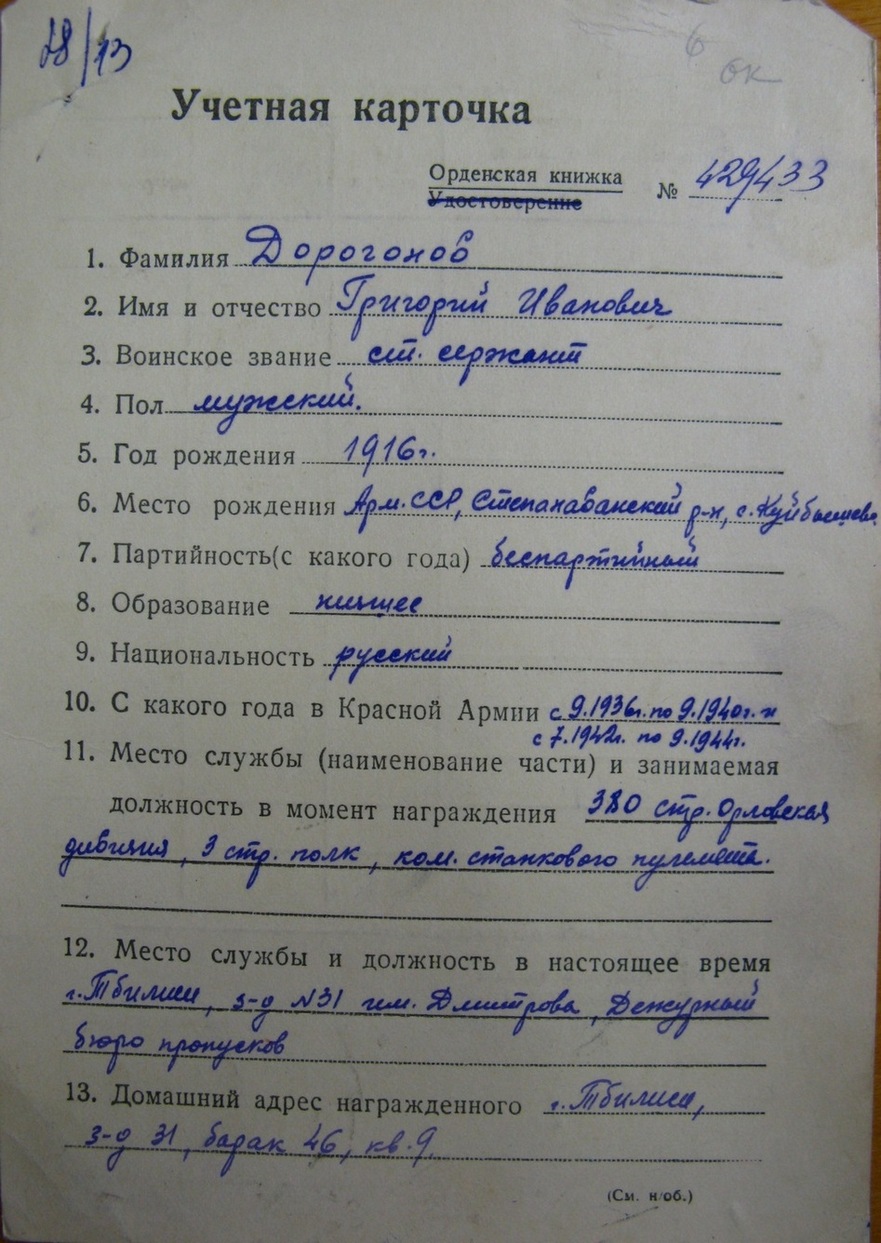 18/13
6
ок
Учетная карточка
Орденская книжка
Удостоверение
№ 429433
1. Фамилия Дорогонов
2. Имя и отчество Григорий Иванович
3. Воинское звание ст. сержант
4. Пол мужский.
5. Год рождения 1916г.
6. Место рождения Арм.ССР, Степанаванский р-н, с. Куйбышево
7. Партийность(с какого года) беспартийный
8. Образование низшее
9. Национальность русский
10. С какого года в Красной Армии с 9.1936г. по 9.1940г. и
с 7.1942г. по 9.1944г.
11. Место службы (наименование части) и занимаемая
должность в момент награждения 380 стр. Орловская
дивизия, 3 стр. полк, ком. станкового пулемета.
12. Место службы и должность в настоящее время
г. Тбилиси, з-д №31 им. Дмитрова, Дежурный
бюро пропусков
13. Домашний адрес награжденного г. Тбилиси,
з-д 31, барак 46, кв. 9.
(См. н/об.)